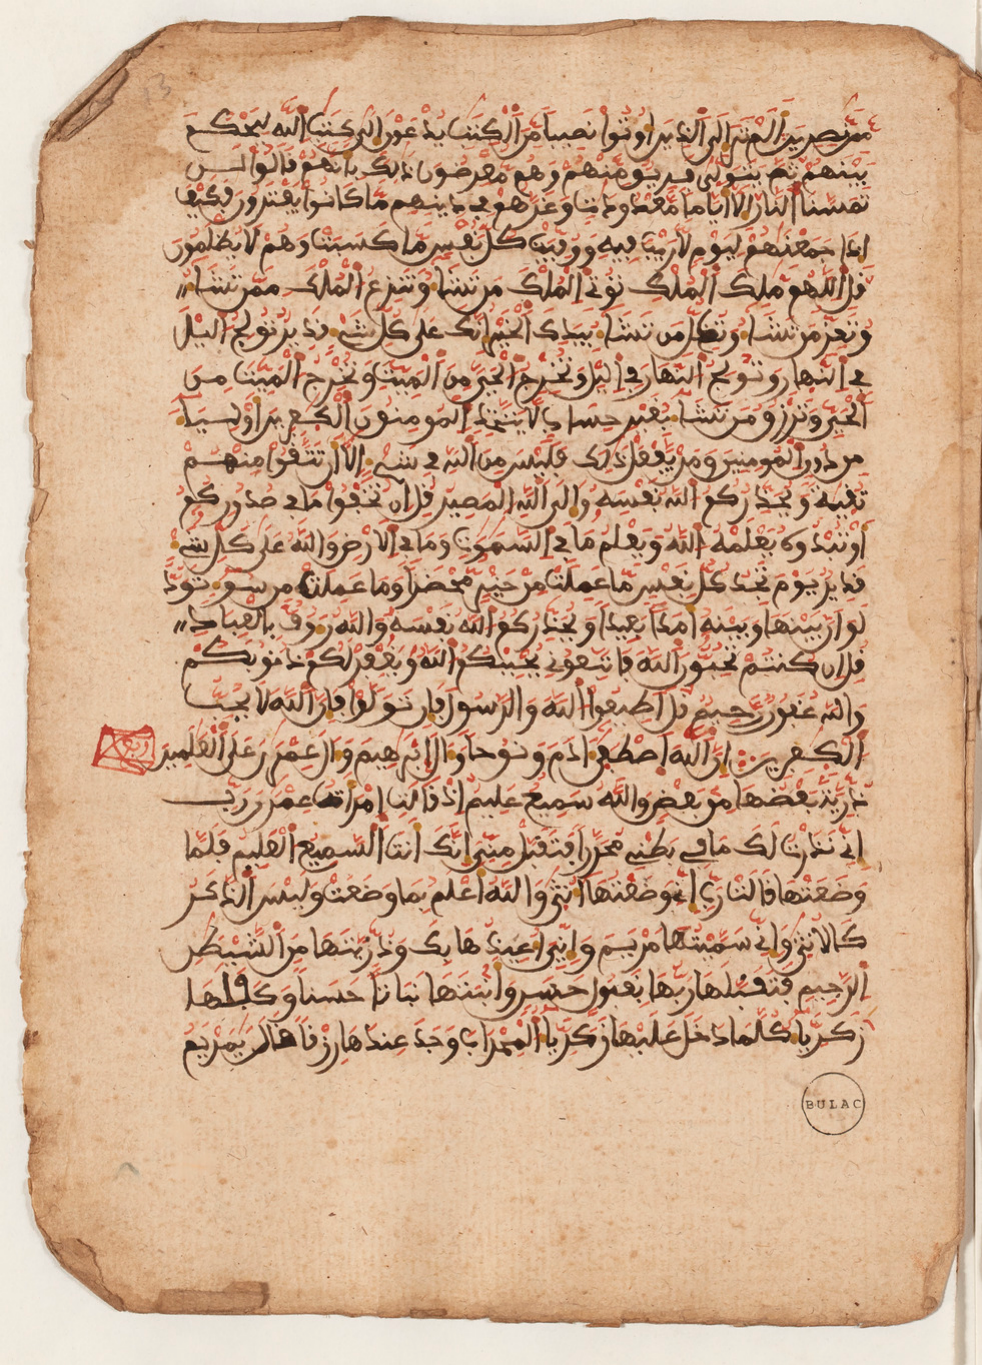 من نصرين الم تر الى الذين اوتوا نصيبا من الكتب يدعون الى كتب الله ليحكم
بينهم ثم يتولى فريق منهم وهم معرضون ذلك بانهم قالوا لن
تمسنا النار الا اياما معدودت وغرهم في دينهم ما كانوا يفترون فكيف
اذا جمعنهم ليوم لا ريب فيه ووفيت كل نفس ما كسبت وهم لا يظلمون
قل اللهم ملك الملك توتي الملك من تشا وتنزع الملك ممن تشا
وتعز من تشا وتذل من تشا بيدك الخير انك على كل شي قدير تولج اليل
في النهار وتولج النهار في اليل وتخرج الحي من الميت وتخرج الميت من
الحي وترزق من تشا بغير حساب لا يتخذ المومنون الكفرين اوليا
من دون المومنين ومن يفعل ذلك فليس من الله في شي الا ان تتقوا منهم
تقية ويحذركم الله نفسه والى الله المصير قل ان تخفوا ما في صدوركم
او تبدوه يعلمه الله ويعلم ما في السموت وما في الارض والله على كل شي
قدير يوم تجد كل نفس ما عملت من خير محضرا وما عملت من سو تود
لو ان بينها وبينه امدا بعيدا ويحذركم الله نفسه والله روف بالعباد
قل ان كنتم تحبون الله فاتبعوني يحببكم الله ويغفر لكم ذنوبكم
والله غفور رحيم قل اطيعوا الله والرسول فان تولوا فان الله لا يحب
الكفرين ان الله اصطفى ادم ونوحا وال ابرهيم وال عمرن على العلمين
ربع
ذرية بعضها من بعض والله سميع عليم اذ قالت امرات عمرن رب
اني نذرت لك ما في بطني محررا فتقبل مني انك انت السميع العليم فلما
وضعتها قالت رب اني وضعتها انثى والله اعلم بما وضعت وليس الذكر
كالانثى واني سميتها مريم واني اعيذها بك وذريتها من الشيطن
الرجيم فتقبلها ربها بقبول حسن وانبتها نباتا حسنا وكفلها
زكريا كلما دخل عليها زكريا المحراب وجد عندها رزقا قال يمريم
BULAC